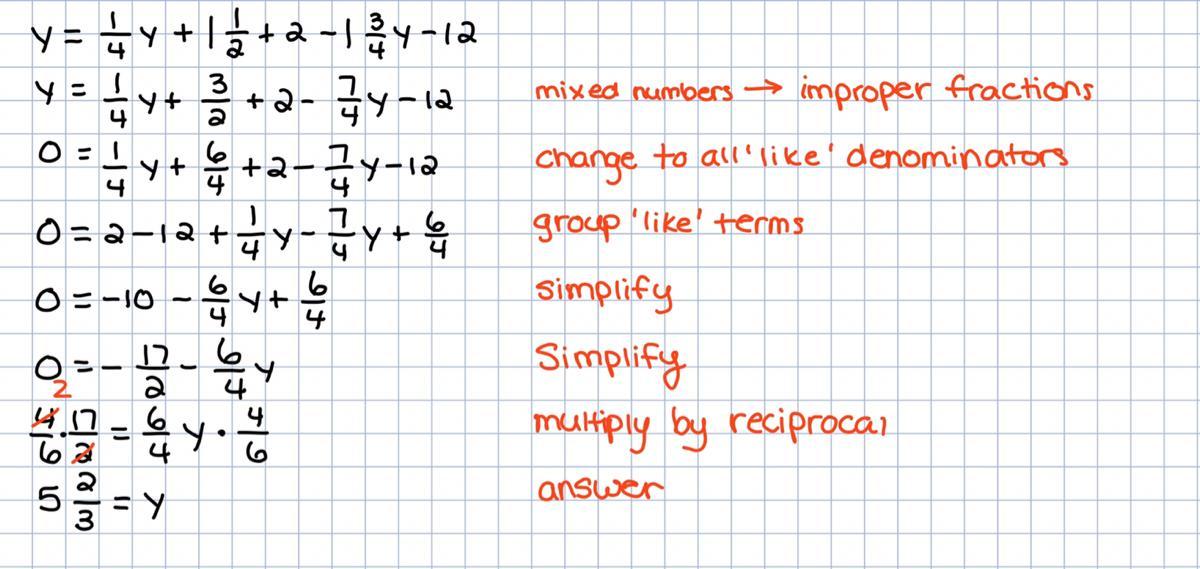 y = 1/4 y + 1 1/2 + 2 - 1 3/4 y - 12
y = 1/4 y + 3/2 + 2 - 7/4 y - 12 mixed numbers → improper fractions
0 = 1/4 y + 6/4 + 2 - 7/4 y - 12 change to all 'like' denominators
0 = 2 - 12 + 1/4 y - 7/4 y + 6/4 group 'like' terms
0 = -10 - 6/4 y + 6/4 simplify
0 = - 17/2 - 6/4 y Simplify
2
4/6 · 17/2 = 6/4 y · 4/6 multiply by reciprocal
5 2/3 = y answer